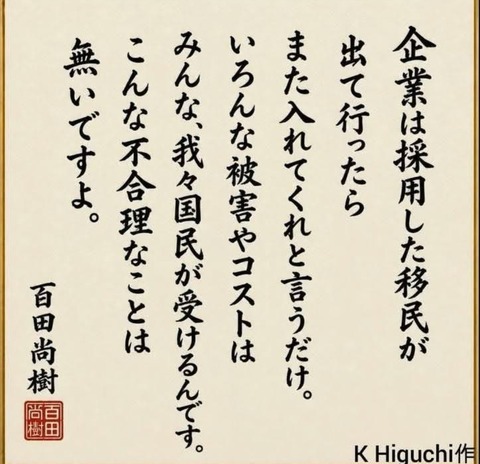 企業は採用した移民が
出て行ったら
また入れてくれと言うだけ。
いろんな被害やコストは
みんな、我々国民が受けるんです。
こんな不合理なことは
無いですよ。
百田尚樹
百田
尚樹
K Higuchi作